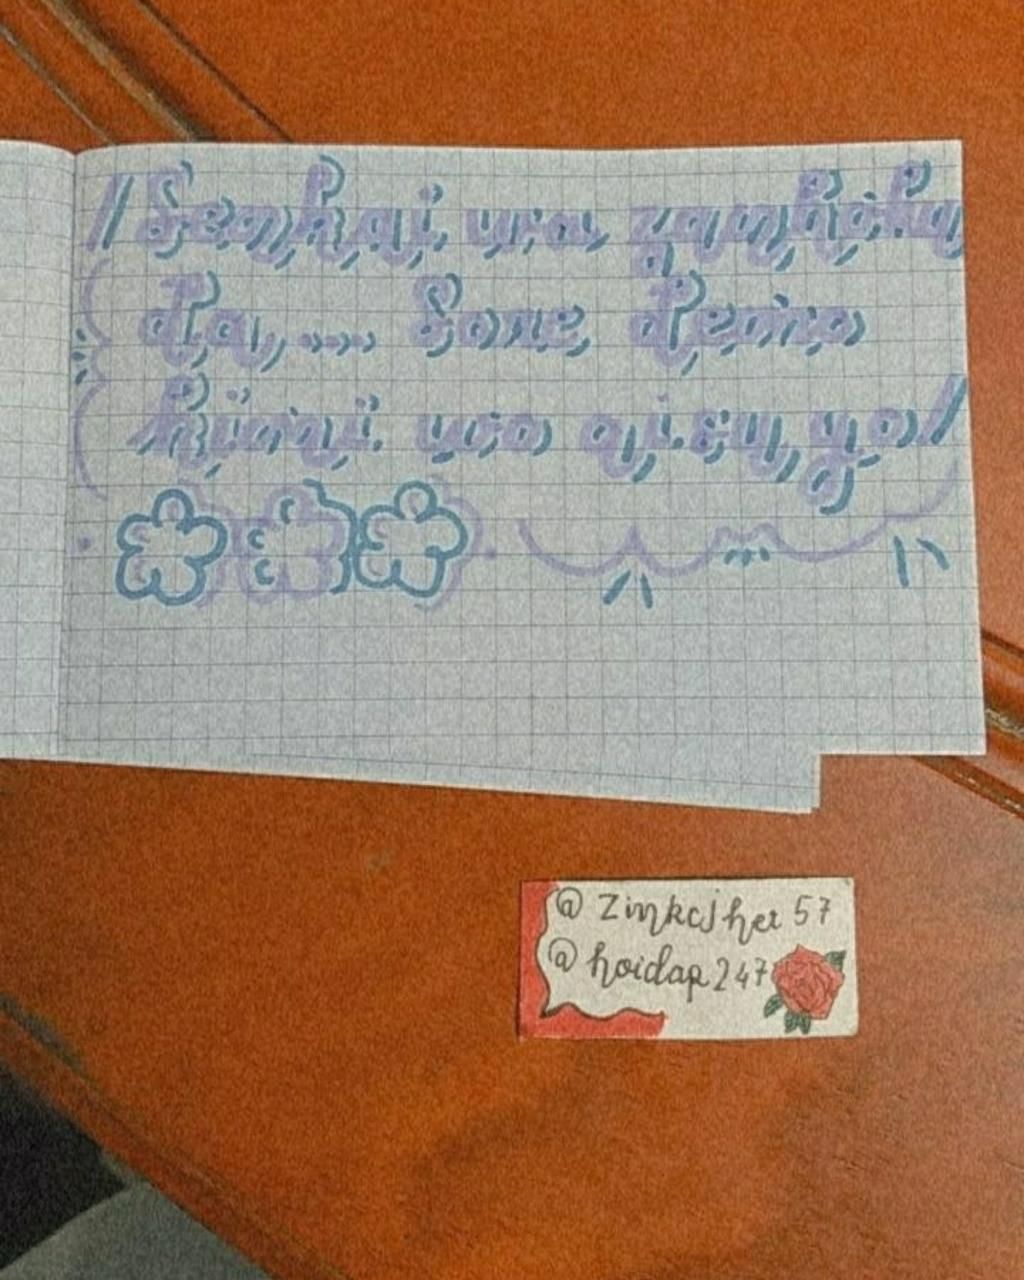 /Senkai wa zankoku
da, .... Sore demo
kimi wo aisu yo/
@ Zinkcjher 57
@ hoidap 247